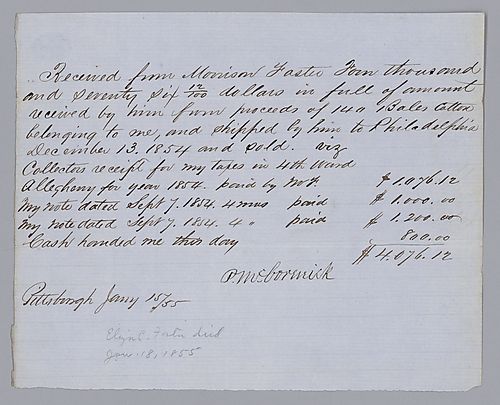 Received from Morrison Foster Four thousand
and Seventy Six 12/100 dollars in full of amount
received by him from proceeds of 140 Bales Cotton
belonging to me, and shipped by him to Philadelphia
December 13. 1854 and sold. viz
Collectors receipt for my taxes in 4th Ward
Allegheny for year 1854. paid by M.F. $1.076.12
My note dated Sept 7. 1854. 4 mos paid $1.000.00
My note dated Sept 7. 1854. 4 " paid $1.200.00
Cash handed me this day 800.00
$4.076.12
P. McCormick
Pittsburgh Jany 15/55
Eliza C. Foster died
Jan. 18, 1855